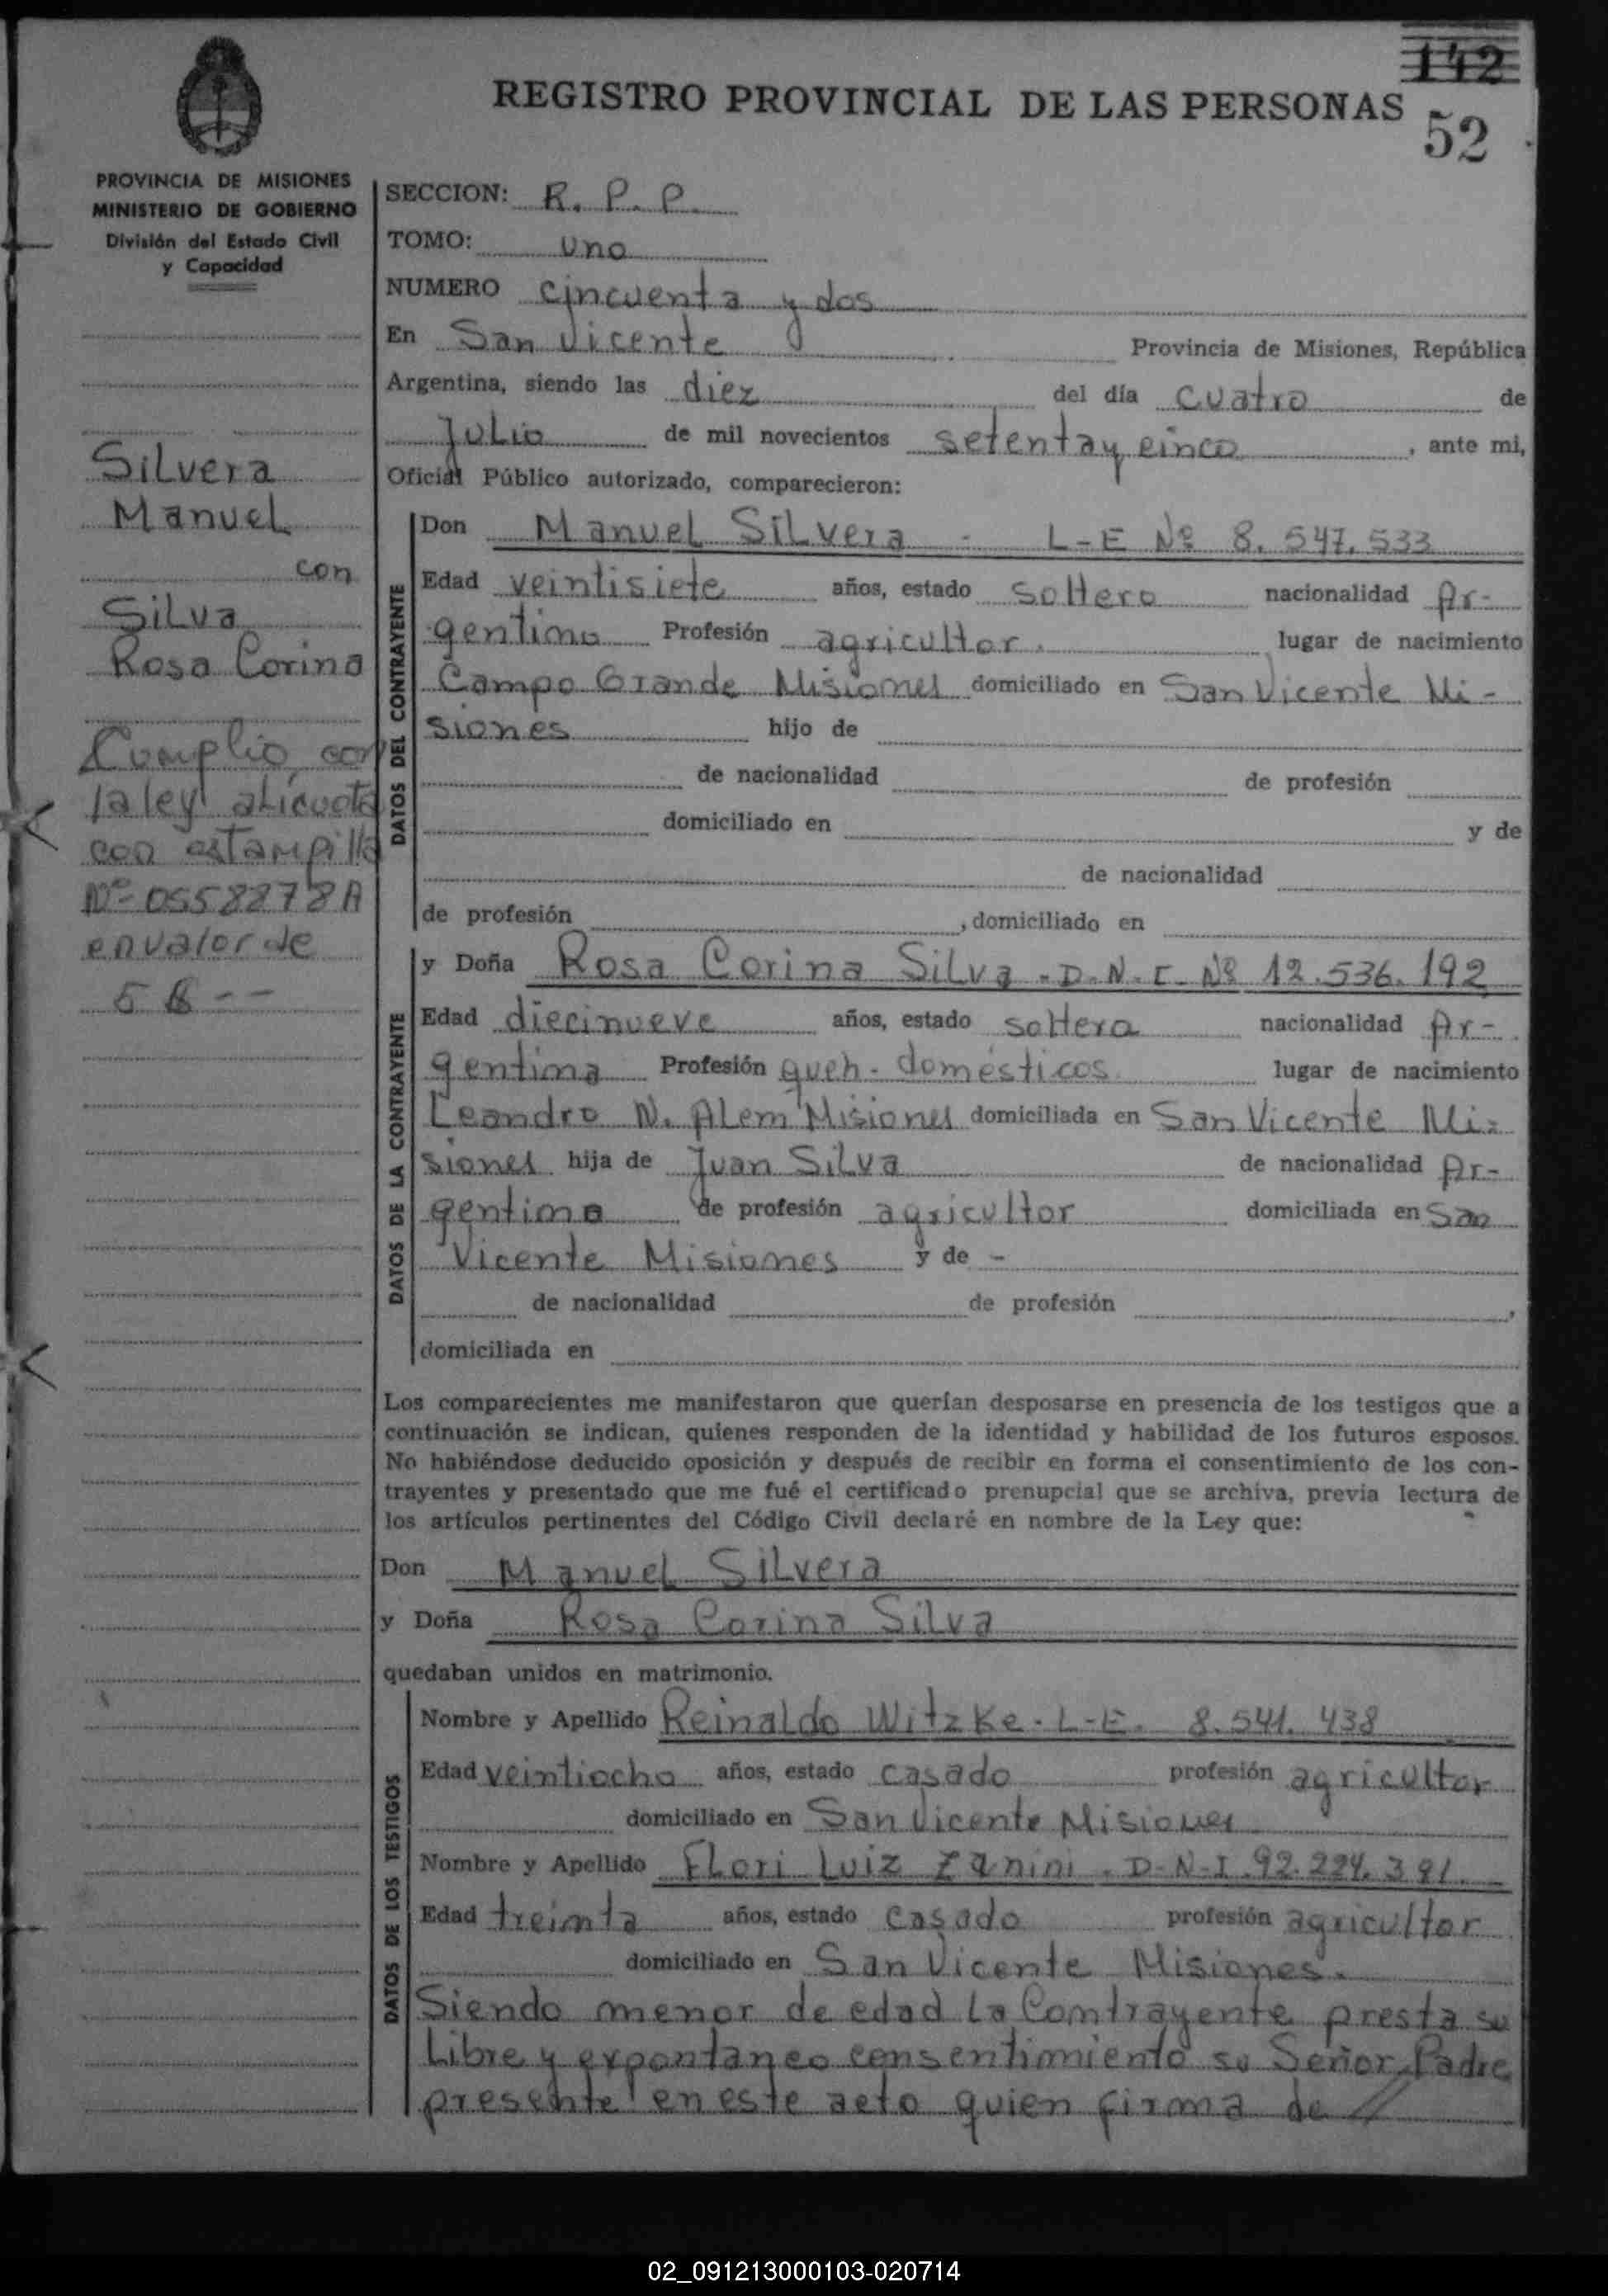 142
REGISTRO PROVINCIAL DE LAS PERSONAS
52
PROVINCIA DE MISIONES
MINISTERIO DE GOBIERNO
División del Estado Civil
y Capacidad
Silvera
Manuel
con
Silva
Rosa Corina
Cumplio con
la ley alicuota
con estampilla
Nº 0558878A
en valor de
SECCION: R. P. P.
TOMO: uno
NUMERO cincuenta y dos
En San Vicente Provincia de Misiones, República
Argentina, siendo las diez del día cuatro de
Julio de mil novecientos setenta y cinco, ante mi,
Oficial Público autorizado, comparecieron:
DATOS DEL CONTRAYENTE
Don Manuel Silvera - L-E Nº 8.547.533
Edad veintisiete años, estado soltero nacionalidad Ar-
gentino Profesión agricultor. lugar de nacimiento
Campo Grande Misiones domiciliado en San Vicente Mi-
siones hijo de
de nacionalidad de profesión
domiciliado en y de
de nacionalidad
de profesión , domiciliado en
DATOS DE LA CONTRAYENTE
y Doña Rosa Corina Silva - D.N.I. Nº 12.536.192
Edad diecinueve años, estado soltera nacionalidad Ar-
gentina Profesión queh. domésticos lugar de nacimiento
Leandro N. Alem Misiones domiciliada en San Vicente Mi-
siones hija de Juan Silva de nacionalidad Ar-
gentino de profesión agricultor domiciliada en San
Vicente Misiones y de -
de nacionalidad de profesión ,
domiciliada en
Los comparecientes me manifestaron que querían desposarse en presencia de los testigos que a
continuación se indican, quienes responden de la identidad y habilidad de los futuros esposos.
No habiéndose deducido oposición y después de recibir en forma el consentimiento de los con-
trayentes y presentado que me fué el certificado prenupcial que se archiva, previa lectura de
los artículos pertinentes del Código Civil declaré en nombre de la Ley que:
Don Manuel Silvera
y Doña Rosa Corina Silva
quedaban unidos en matrimonio.
DATOS DE LOS TESTIGOS
Nombre y Apellido Reinaldo Witzke - L-E. 8.541.438
Edad veintiocho años, estado casado profesión agricultor
domiciliado en San Vicente Misiones
Nombre y Apellido Flori Luiz Zanini - D-N-I. 92.224.381
Edad treinta años, estado casado profesión agricultor
domiciliado en San Vicente Misiones.
Siendo menor de edad la Contrayente presta su
Libre y expontaneo consentimiento su Señor Padre
presente en este acto quien firma de //
02_091213000103-020714